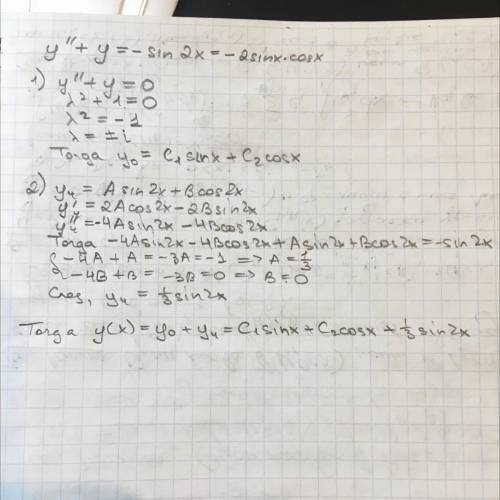 y'' + y = - sin 2x = - 2sinx·cosx
1) y'' + y = 0
λ² + 1 = 0
λ² = -1
λ = ± i
Тогда y₀ = C₁ sinx + C₂ cosx
2) yч = A sin2x + B cos2x
y'ч = 2A cos2x - 2B sin2x
y''ч = -4A sin2x - 4B cos2x
Тогда -4A sin2x - 4B cos2x + A sin2x + B cos2x = - sin2x
{ -4A + A = -3A = -1 => A = 1/3
{ -4B + B = -3B = 0 => B = 0
След, yч = 1/3 sin2x
Тогда y(x) = y₀ + yч = C₁ sinx + C₂ cosx + 1/3 sin2x